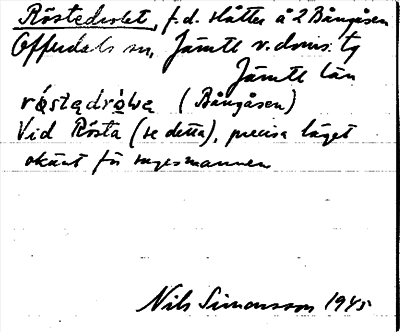 Röstedrolet, f.d. slåtter å 2 Bångåsen
Offerdals sn, Jämtl. v. doms. tg
Jämtl. län
(Bångåsen)
Vid Rösta (se detta), precisa läget
okänt för sagesmannen
Nils Simonsson 1945